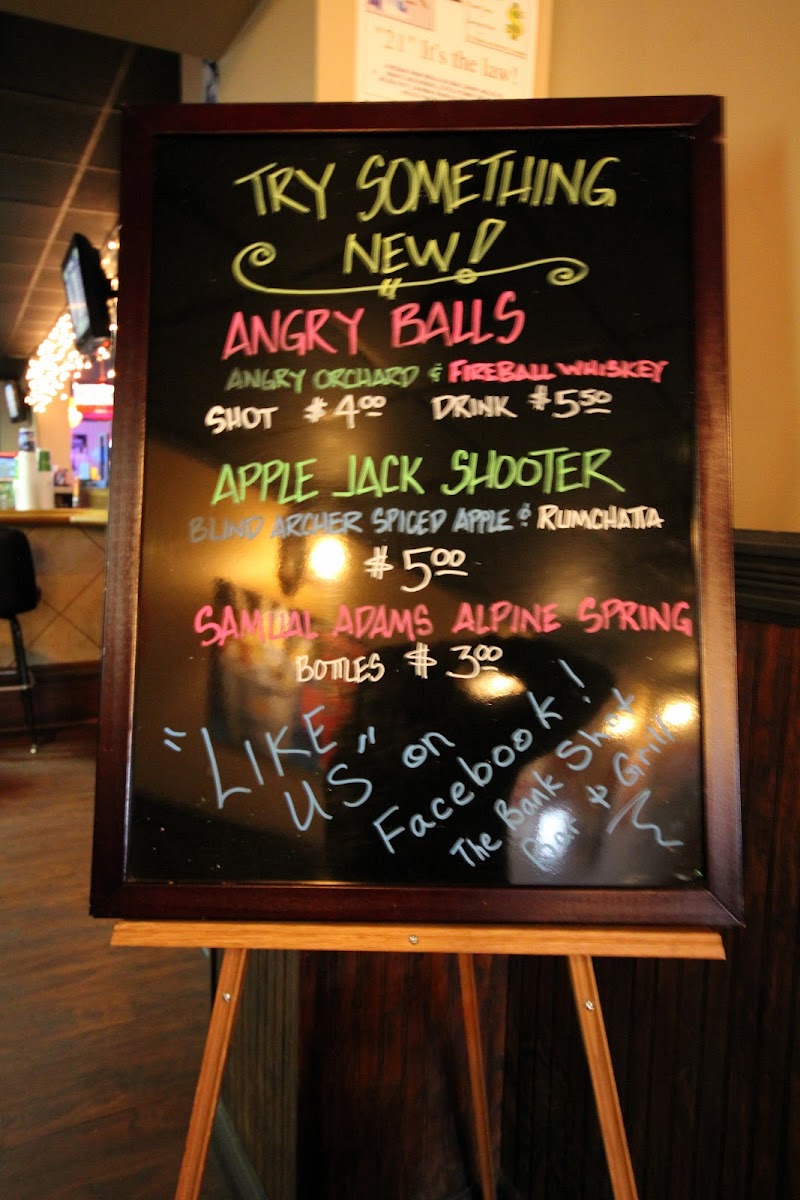 "21" It's the law!
TRY SOMETHING
NEW!
ANGRY BALLS
ANGRY ORCHARD & FIREBALL WHISKEY
SHOT $4.00 DRINK $5.50
APPLE JACK SHOOTER
BLIND ARCHER SPICED APPLE & RUMCHATA
$5.00
SAMUAL ADAMS ALPINE SPRING
BOTTLES $3.00
"LIKE
US" on
Facebook!
The Bank Shot
Bar + Grill